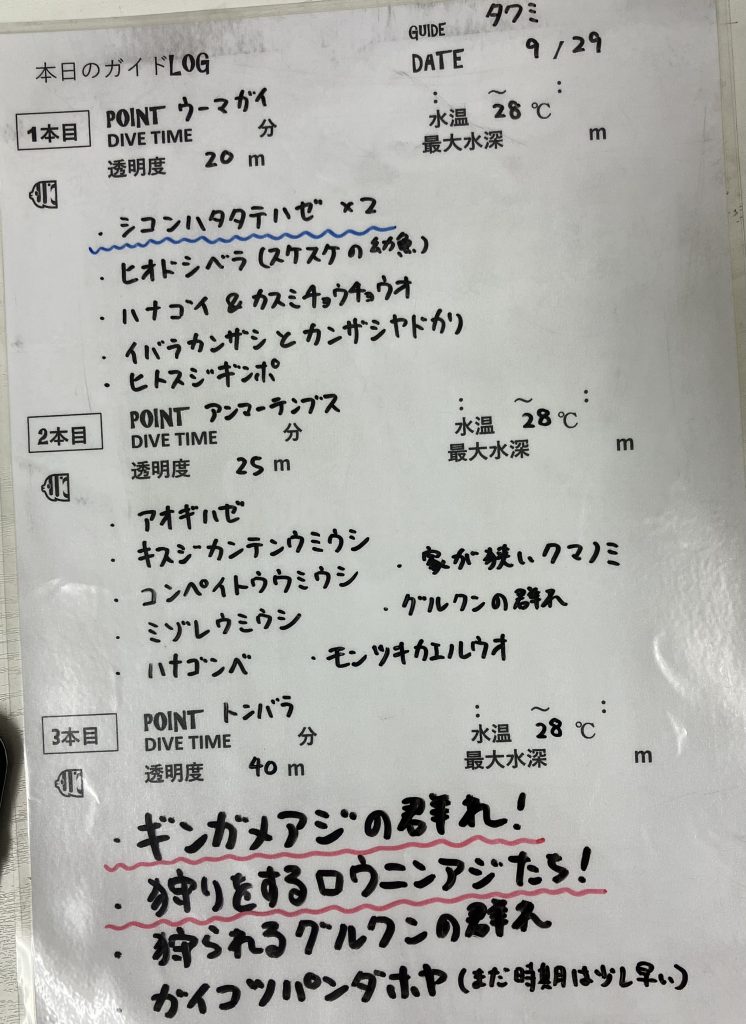 本日のガイドLOG
GUIDE タクミ
DATE 9/29
1本目
POINT ウーマガイ
: ～ :
DIVE TIME 分
水温 28℃
透明度 20 m
最大水深 m
・シコンハタタテハゼ ×2
・ヒオドシベラ(スケスケの幼魚)
・ハナゴイ & カスミチョウチョウオ
・イバラカンザシとカンザシヤドカリ
・ヒトスジギンポ
2本目
POINT アンマーテンブス
: ～ :
DIVE TIME 分
水温 28℃
透明度 25 m
最大水深 m
・アオギハゼ
・キスジカンテンウミウシ
・コンペイトウウミウシ
・ミゾレウミウシ
・ハナゴンベ
・家が狭いクマノミ
・グルクンの群れ
・モンツキカエルウオ
3本目
POINT トンバラ
: ～ :
DIVE TIME 分
水温 28℃
透明度 40 m
最大水深 m
・ギンガメアジの群れ!
・狩りをするロウニンアジたち!
・狩られるグルクンの群れ
・ガイコツパンダホヤ(まだ時期は少し早い)